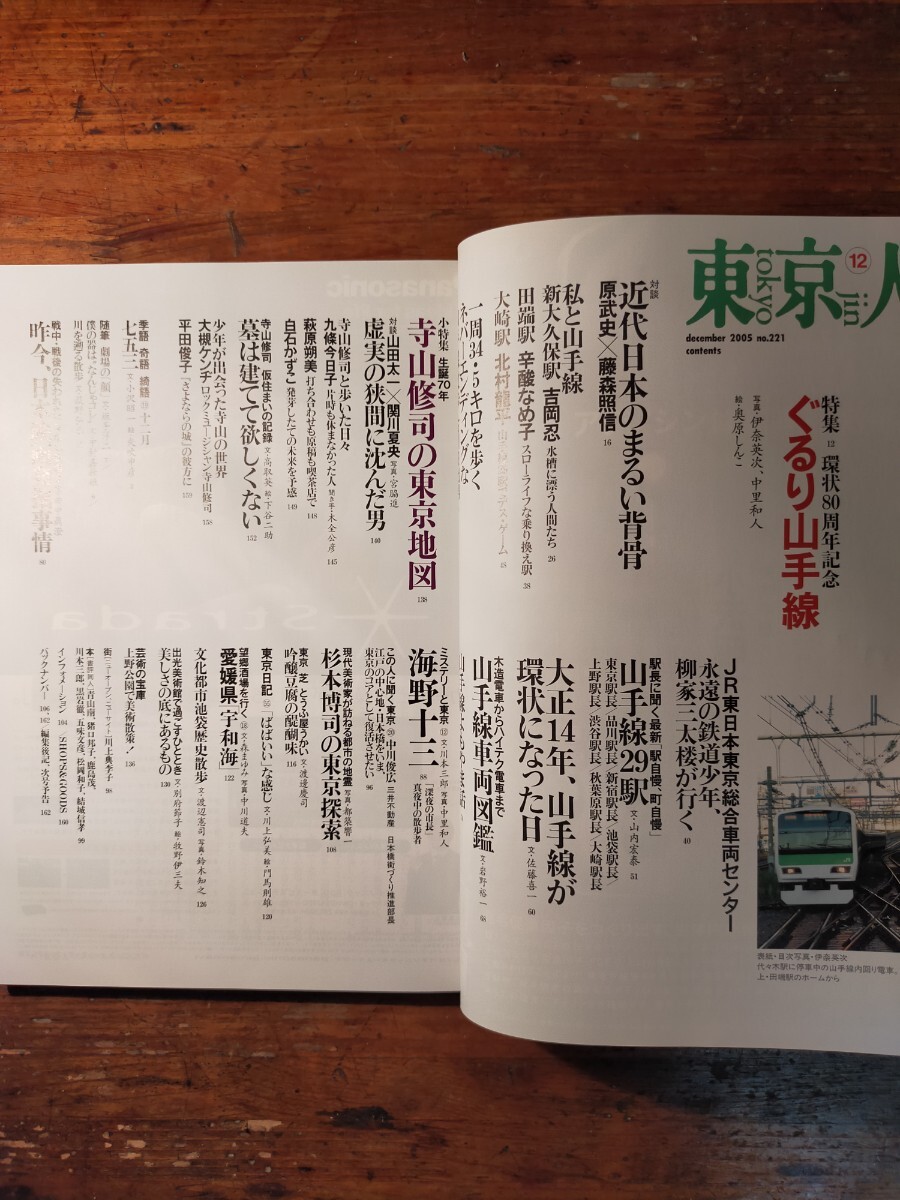 東京人
tokyo jin
12
december 2005 no.221
contents
特集 12 環状80周年記念
ぐるり山手線
写真・伊奈英次、中里和人
絵・奥原しんこ
対談
近代日本のまるい背骨
原武史×藤森照信 16
私と山手線
新大久保駅 吉岡忍 水槽に漂う人間たち 26
田端駅 辛酸なめ子 スローライフな乗り換え駅 38
大崎駅 北村龍平 山手線デス・ゲーム 48
一周34・5キロを歩く
ネバーエンディングな
JR東日本東京総合車両センター
永遠の鉄道少年、
柳家三太楼が行く 40
駅長に聞く最新「駅自慢、町自慢」
山手線29駅 文・山内宏泰 51
東京駅長/品川駅長/新宿駅長/池袋駅長/
上野駅長/渋谷駅長/秋葉原駅長/大崎駅長
大正14年、山手線が
環状になった日 文・佐藤喜一 60
木造電車からハイテク電車まで
山手線車両図鑑 文・岩野裕一 68
表紙・目次写真・伊奈英次
代々木駅に停車中の山手線内回り電車。
上・田端駅のホームから
小特集 生誕70年
寺山修司の東京地図 138
対談 山田太一×関川夏央 写真・宮脇進
虚実の狭間に沈んだ男 140
寺山修司と歩いた日々
九條今日子 片時も休まなかった人 聞き手・木全公彦 145
萩原朔美 打ち合わせも原稿も喫茶店で 148
白石かずこ 発芽したての未来を予感 149
寺山修司 仮住まいの記録
墓は建てて欲しくない 文・高取英 絵・下谷二助 152
少年が出会った寺山の世界
大槻ケンヂ ロックミュージシャン寺山修司 158
平田俊子 「さよならの城」の彼方に 159
季語 奇語 綺語 十二月
七五三
随筆 劇場の顔
川を遡る散歩
戦中・戦後の
昨今、
事情
ミステリーと東京 文・川本三郎 写真・中里和人
海野十三 88
「深夜の市長」
真夜中の散歩者
この人に聞く・東京 中川俊広 三井不動産 日本橋街づくり推進部長
江戸の中心地・日本橋をいま、
東京のコアとして復活させたい 96
現代美術家が訪ねる都市の地霊 写真・都築響一
杉本博司の東京探索 108
東京 芝 とうふ屋うかい
吟醸豆腐の醍醐味 文・渡邊慶司 116
東京日記 「ばばいい」な感じ 文・川上弘美 絵・門馬則雄 120
望郷酒場を行く 文・森まゆみ 写真・中川道夫
愛媛県「宇和海」 122
文化都市池袋歴史散歩 文・渡辺憲司 写真・鈴木知之 126
出光美術館で過ごすひととき
美しさの底にあるもの 文・別府節子 絵・牧野伊三夫 130
芸術の宝庫
上野公園で美術散策! 136
街 [ニューオープン・ニューサイト] 川上典李子 98
本 [書評同人] 青山南、猪口邦子、鹿島茂、
川本三郎、黒岩徹、五味文彦、松岡和子、結城信孝 99
インフォメーション 104 SHOPS&GOODS 160
バックナンバー 106 162 編集後記、次号予告 162
Panasonic
strada